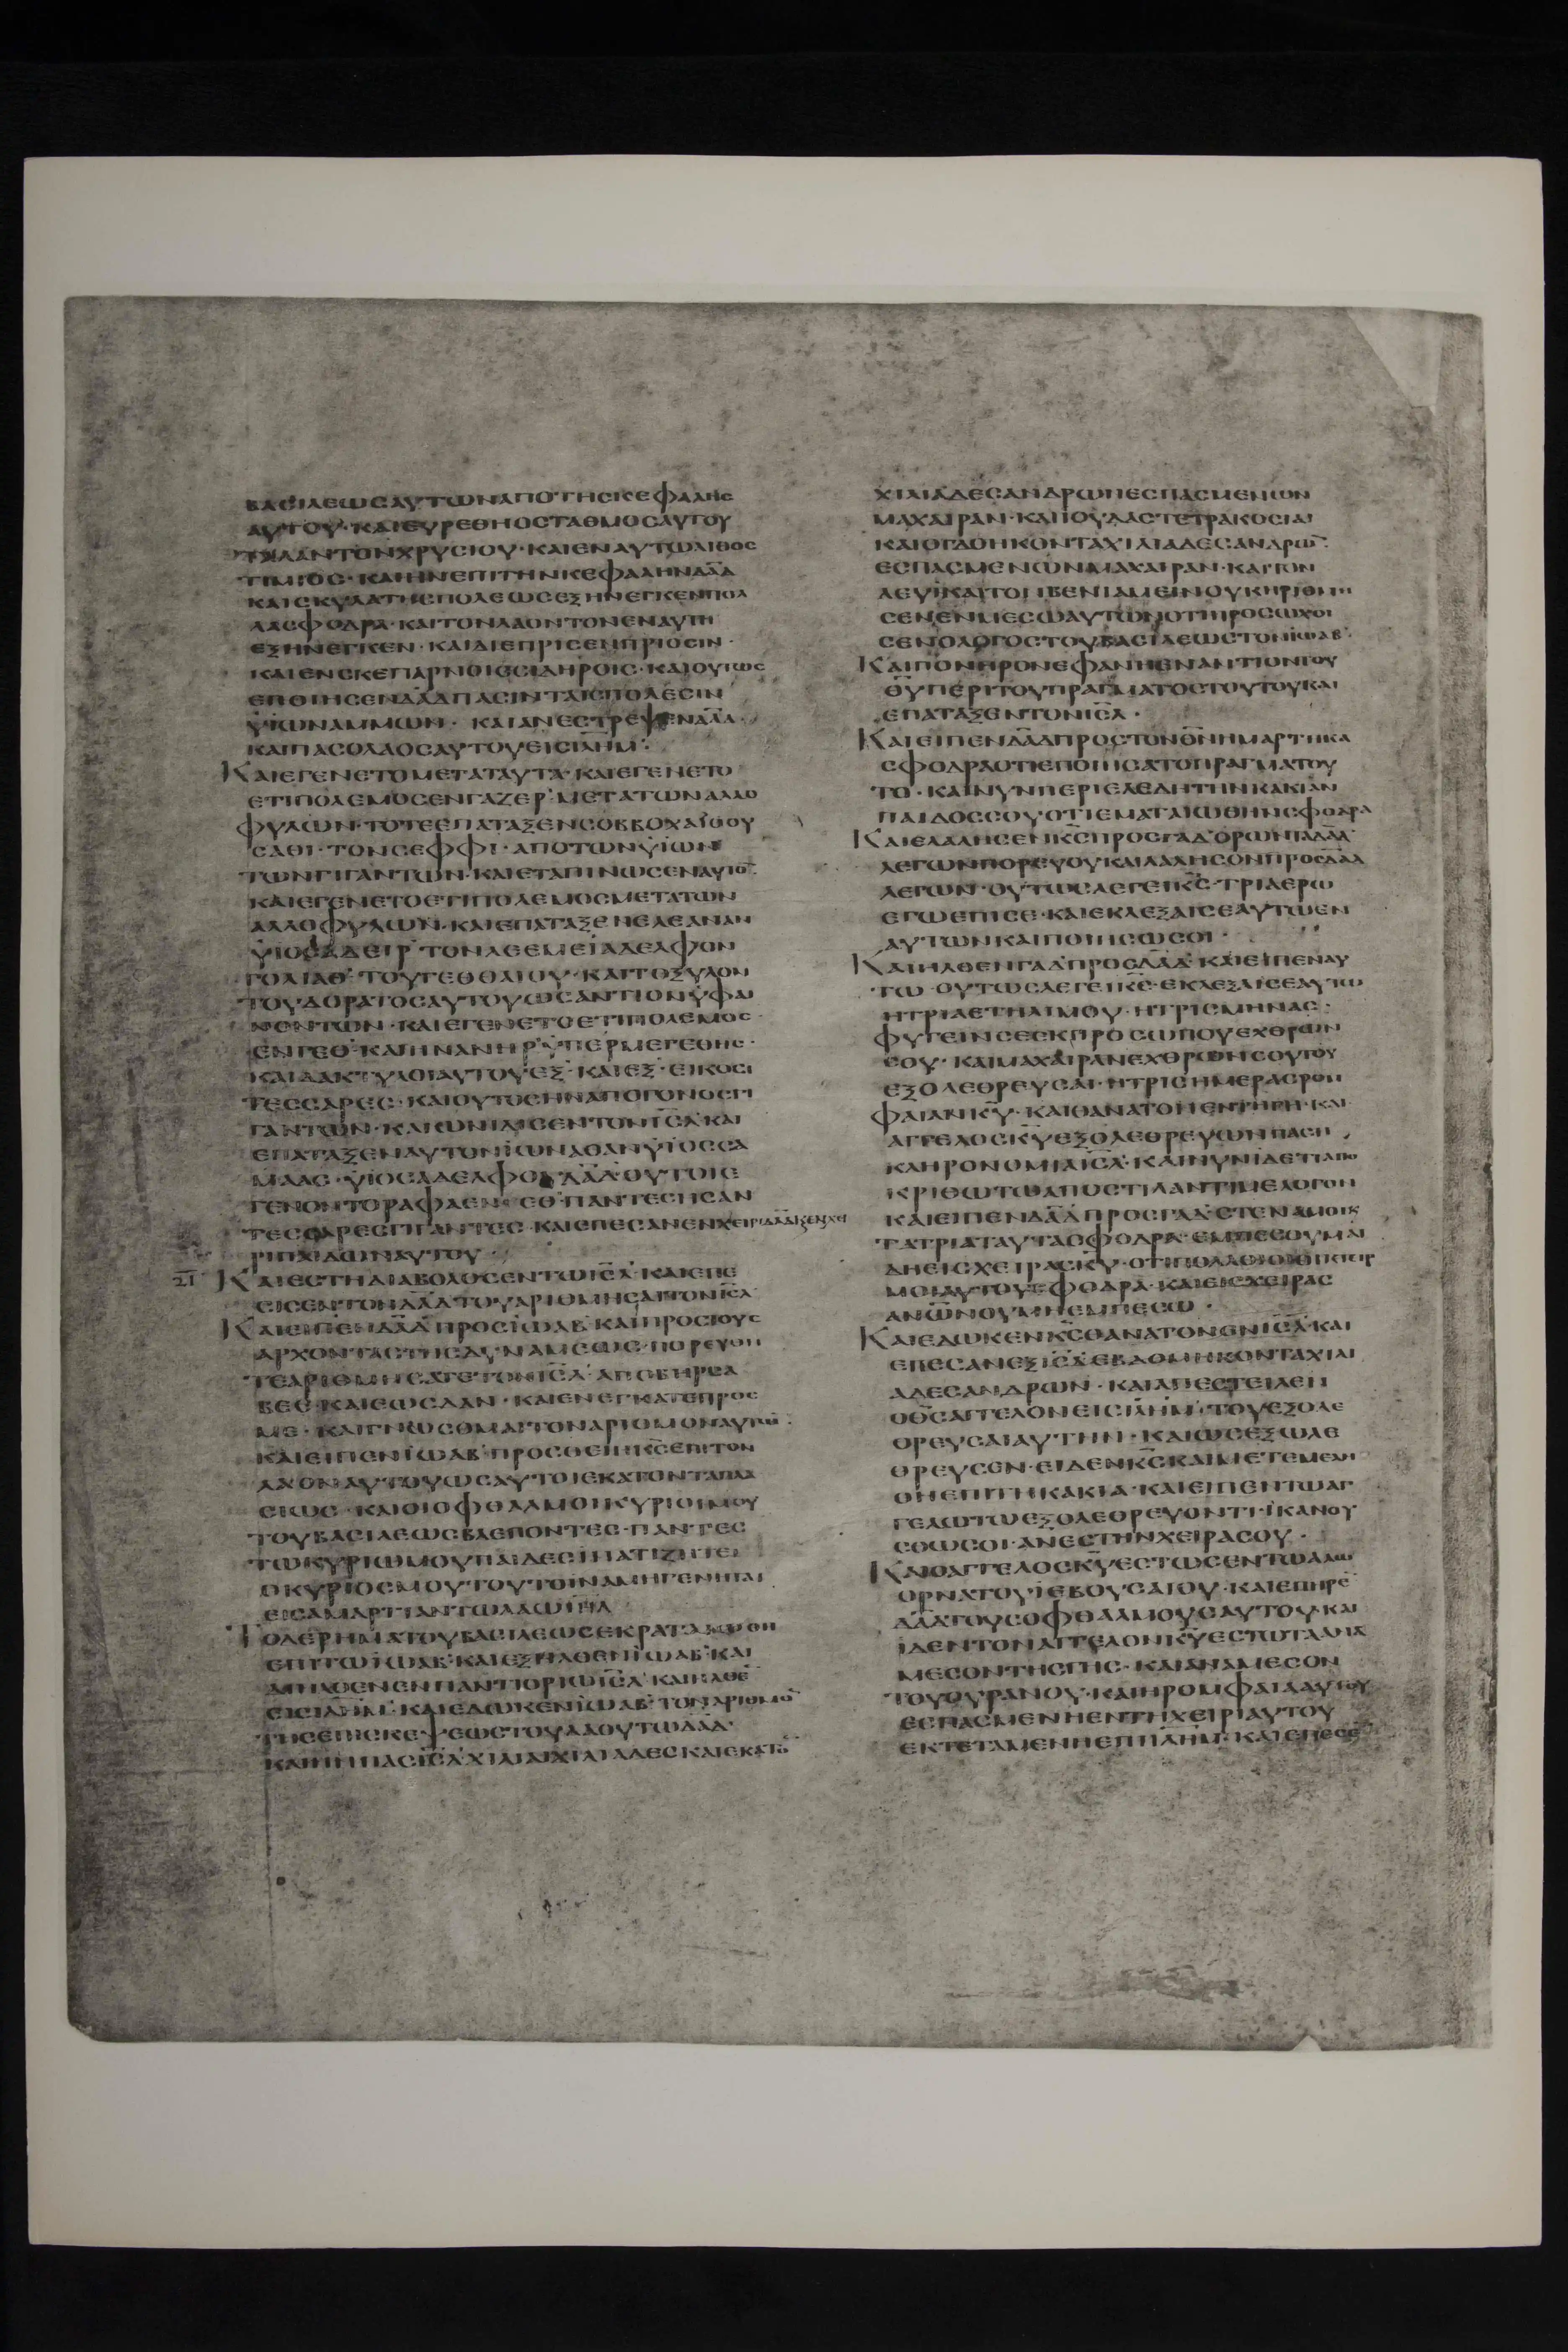 ΒΑCΙΛΕΩCΑΥΤΩΝΑΠΟΤΗCΚΕΦΑΛΗC
ΑΥΤΟΥ·ΚΑΙΕΥΡΕΘΗΟCΤΑΘΜΟCΑΥΤΟΥ
ΤΑΛΑΝΤΟΝΧΡΥCΙΟΥ·ΚΑΙΕΝΑΥΤΩΛΙΘΟC
ΤΙΜΙΟC·ΚΑΙΗΝΕΠΙΤΗΝΚΕΦΑΛΗΝΔΑ̅Δ
ΚΑΙCΚΥΛΑΤΗCΠΟΛΕΩCΕΞΗΝΕΓΚΕΝΠΟΛ
ΛΑCΦΟΔΡΑ·ΚΑΙΤΟΝΛΑΟΝΤΟΝΕΝΑΥΤΗ
ΕΞΗΝΕΓΚΕΝ·ΚΑΙΔΙΕΠΡΙCΕΝΠΡΙΟCΙΝ·
ΚΑΙΕΝCΚΕΠΑΡΝΟΙCCΙΔΗΡΟΙC·ΚΑΙΟΥΤΩC
ΕΠΟΙΗCΕΝΔΑ̅ΔΠΑCΙΝΤΑΙCΠΟΛΕCΙΝ
ΥΪΩΝΑΜΜΩΝ· ΚΑΙΑΝΕCΤΡΕΨΕΝΔΑ̅Δ·
ΚΑΙΠΑCΟΛΑΟCΑΥΤΟΥΕΙCΙΛ̅ΗΜ·
ΚΑΙΕΓΕΝΕΤΟΜΕΤΑΤΑΥΤΑ·ΚΑΙΕΓΕΝΕΤΟ
ΕΤΙΠΟΛΕΜΟCΕΝΓΑΖΕΡ·ΜΕΤΑΤΩΝΑΛΛΟ
ΦΥΛΩΝ·ΤΟΤΕΕΠΑΤΑΞΕΝCΟΒΒΟΧΑΪΟΟΥ
CΑΘΙ·ΤΟΝCΕΦΦΙ·ΑΠΟΤΩΝΥΪΩΝ
ΤΩΝΓΙΓΑΝΤΩΝ·ΚΑΙΕΤΑΠΙΝΩCΕΝΑΥΤΟ̅
ΚΑΙΕΓΕΝΕΤΟΕΤΙΠΟΛΕΜΟCΜΕΤΑΤΩΝ
ΑΛΛΟΦΥΛΩΝ·ΚΑΙΕΠΑΤΑΞΕΝΕΛΕΑΝΑΝ
ΥΪΟCΑΔΕΙΡ·ΤΟΝΛΕΕΜΕΪΑΔΕΛΦΟΝ
ΓΟΛΙΑΘ·ΤΟΥΓΕΘΘΑΙΟΥ·ΚΑΙΤΟΞΥΛΟΝ
ΤΟΥΔΟΡΑΤΟCΑΥΤΟΥΩCΑΝΤΙΟΝΥΦΑΙ
ΝΟΝΤΩΝ·ΚΑΙΕΓΕΝΕΤΟΕΤΙΠΟΛΕΜΟC·
ΕΝΓΕΘ·ΚΑΙΗΝΑΝΗΡΥΠΕΡΜΕΓΕΘΗC·
ΚΑΙΔΑΚΤΥΛΟΙΑΥΤΟΥΕΞ·ΚΑΙΕΞ·ΕΙΚΟCΙ
ΤΕCCΑΡΕC·ΚΑΙΟΥΤΟCΗΝΑΠΟΓΟΝΟCΓΙ
ΓΑΝΤΩΝ·ΚΑΙΩΝΙΔΙCΕΝΤΟΝΙC̅Λ·ΚΑΙ
ΕΠΑΤΑΞΕΝΑΥΤΟΝΪΩΝΑΘΑΝΥΪΟCCΑ
ΜΑΑC·ΥΪΟCΑΔΕΛΦΟΥΔΑ̅Δ·ΟΥΤΟΙΕ
ΓΕΝΟΝΤΟΡΑΦΑΕΝΓΕΘ·ΠΑΝΤΕCΗCΑΝ
ΤΕCCΑΡΕCΓΙΓΑΝΤΕC·ΚΑΙΕΠΕCΑΝΕΝΧΕΙΡΙΔΑ̅ΔΚΕΝΧΕΙ
ΡΙΠΑΙΔΩΝΑΥΤΟΥ·
ΚΑΙΕCΤΗΔΙΑΒΟΛΟCΕΝΤΩΙC̅Λ·ΚΑΙΕΠΕ
CΙCΕΝΤΟΝΔΑ̅ΔΤΟΥΑΡΙΘΜΗCΑΙΤΟΝΙC̅Λ
ΚΑΙΕΙΠΕΝΔΑ̅ΔΠΡΟCΪΩΑΒ·ΚΑΙΠΡΟCΤΟΥC
ΑΡΧΟΝΤΑCΤΗCΔΥΝΑΜΕΩC·ΠΟΡΕΥΟΗ
ΤΕΑΡΙΘΜΗCΑΤΕΤΟΝΙC̅Λ·ΑΠΟΒΗΡCΑ
ΒΕΕ·ΚΑΙΕΩCΔΑΝ·ΚΑΙΕΝΕΓΚΑΤΕΠΡΟC
ΜΕ·ΚΑΙΓΝΩCΟΜΑΙΤΟΝΑΡΙΘΜΟΝΑΥΤΩ̅·
ΚΑΙΕΙΠΕΝΪΩΑΒ·ΠΡΟCΘΕΙΗΚ̅CΕΠΙΤΟΝ
ΛΑΟΝΑΥΤΟΥΩCΑΥΤΟΙΕΚΑΤΟΝΤΑΠΛΑ
CΙΩC·ΚΑΙΟΙΟΦΘΑΛΜΟΙΚΥΡΙΟΥΜΟΥ
ΤΟΥΒΑCΙΛΕΩCΒΛΕΠΟΝΤΕC·ΠΑΝΤΕC
ΤΩΚΥΡΙΩΜΟΥΠΑΙΔΕCΪΝΑΤΙΖΗΤΕΙ
ΟΚΥΡΙΟCΜΟΥΤΟΥΤΟΪΝΑΜΗΓΕΝΗΤΑΙ
ΕΙCΑΜΑΡΤΙΑΝΤΩΛΑΩΙΗ̅Λ
ΤΟΔΕΡΗΜΑΤΟΥΒΑCΙΛΕΩCΕΚΡΑΤΑΙΩΘΗ
ΕΠΙΤΩΪΩΑΒ·ΚΑΙΕΞΗΛΘΕΝΪΩΑΒ·ΚΑΙ
ΔΙΗΛΘΕΝΕΝΠΑΝΤΙΟΡΙΩΙC̅Λ·ΚΑΙΗΛΘΕ̅
ΕΙCΙΛ̅ΗΜ·ΚΑΙΕΔΩΚΕΝΪΩΑΒ·ΤΟΝΑΡΙΘΜΟ̅
ΤΗCΕΠΙCΚΕΨΕΩCΤΟΥΛΑΟΥΤΩΔΑ̅Δ·
ΚΑΙΗΝΠΑCΙC̅ΛΧΙΛΙΑΙΧΙΛΙΑΔΕCΚΑΙΕΚΑΤΟ̅
ΧΙΛΙΑΔΕCΑΝΔΡΩΝΕCΠΑCΜΕΝΩΝ
ΜΑΧΑΙΡΑΝ·ΚΑΙΙΟΥΔΑCΤΕΤΡΑΚΟCΙΑΙ
ΚΑΙΟΓΔΟΗΚΟΝΤΑΧΙΛΙΑΔΕCΑΝΔΡΩ̅·
ΕCΠΑCΜΕΝΩΝΜΑΧΑΙΡΑΝ·ΚΑΙΤΟΝ
ΛΕΥΙΚΑΙΤΟΝΒΕΝΙΑΜΕΙΝΟΥΚΗΡΙΘΜΗ
CΕΝΕΝΜΕCΩΑΥΤΩΝΟΤΙΠΡΟCΩΧΘΙ
CΕΝΟΛΟΓΟCΤΟΥΒΑCΙΛΕΩCΤΟΝΪΩΑΒ·
ΚΑΙΠΟΝΗΡΟΝΕΦΑΝΗΕΝΑΝΤΙΟΝΤΟΥ
Θ̅ΥΠΕΡΙΤΟΥΠΡΑΓΜΑΤΟCΤΟΥΤΟΥΚΑΙ
ΕΠΑΤΑΞΕΝΤΟΝΙC̅Λ·
ΚΑΙΕΙΠΕΝΔΑ̅ΔΠΡΟCΤΟΝΘ̅ΝΗΜΑΡΤΗΚΑ
CΦΟΔΡΑΟΤΙΕΠΟΙΗCΑΤΟΠΡΑΓΜΑΤΟΥ
ΤΟ·ΚΑΙΝΥΝΠΕΡΙΕΛΕΔΗΤΗΝΚΑΚΙΑΝ
ΠΑΙΔΟCCΟΥΟΤΙΕΜΑΤΑΙΩΘΗΝCΦΟΔΡΑ
ΚΑΙΕΛΑΛΗCΕΝΚ̅CΠΡΟCΓΑΔ·ΟΡΩΝΤΑΔΑ̅Δ
ΛΕΓΩΝΠΟΡΕΥΟΥΚΑΙΛΑΛΗCΟΝΠΡΟCΔΑ̅Δ
ΛΕΓΩΝ·ΟΥΤΩCΛΕΓΕΙΚ̅C·ΤΡΙΑΕΡΩ
ΕΓΩΕΠΙCΕ·ΚΑΙΕΚΛΕΞΑΙCΕΑΥΤΩΕΝ
ΑΥΤΩΝΚΑΙΠΟΙΗCΩCΟΙ·
ΚΑΙΗΛΘΕΝΓΑΔ·ΠΡΟCΔΑ̅Δ·ΚΑΙΕΙΠΕΝΑΥ
ΤΩ·ΟΥΤΩCΛΕΓΕΙΚ̅C·ΕΚΛΕΞΑΙCΕΑΥΤΩ
ΗΤΡΙΑΕΤΗΛΙΜΟΥ·ΗΤΡΙCΜΗΝΑC·
ΦΥΓΕΙΝCΕΕΚΠΡΟCΩΠΟΥΕΧΘΡΩΝ
CΟΥ·ΚΑΙΜΑΧΑΙΡΑΝΕΧΘΡΩΝCΟΥΤΟΥ
ΕΞΟΛΕΘΡΕΥCΑΙ·ΗΤΡΙCΗΜΕΡΑCΡΟΜ
ΦΑΙΑΝΚ̅Υ·ΚΑΙΘΑΝΑΤΟΝΕΝΤΗΓΗ·ΚΑΙ
ΑΓΓΕΛΟCΚ̅ΥΕΞΟΛΕΘΡΕΥΩΝΠΑCΗ
ΚΛΗΡΟΝΟΜΙΑΙC̅Λ·ΚΑΙΝΥΝΙΔΕΤΙΑΠΟ
ΚΡΙΘΩΤΩΑΠΟCΤΙΛΑΝΤΙΜΕΛΟΓΟΝ
ΚΑΙΕΙΠΕΝΔΑ̅ΔΠΡΟCΓΑΔ·CΤΕΝΑΜΟΙΚ
ΤΑΤΡΙΑΤΑΥΤΑCΦΟΔΡΑ·ΕΜΠΕCΟΥΜΑΙ
ΔΗΕΙCΧΕΙΡΑCΚ̅Υ·ΟΤΙΠΟΛΛΟΙΟΙΟΙΚΤΙΡ
ΜΟΙΑΥΤΟΥCΦΟΔΡΑ·ΚΑΙΕΙCΧΕΙΡΑC
ΑΝΩ̅ΝΟΥΜΗΕΜΠΕCΩ·
ΚΑΙΕΔΩΚΕΝΚ̅CΘΑΝΑΤΟΝΕΝΙC̅Λ·ΚΑΙ
ΕΠΕCΑΝΕΞΙC̅ΛΕΒΔΟΜΗΚΟΝΤΑΧΙΛΙ
ΑΔΕCΑΝΔΡΩΝ·ΚΑΙΑΠΕCΤΕΙΛΕΝ
ΟΘ̅CΑΓΓΕΛΟΝΕΙCΙΛ̅ΗΜ·ΤΟΥΕΞΟΛΕ
ΘΡΕΥCΑΙΑΥΤΗΝ·ΚΑΙΩCΕΞΩΛΕ
ΘΡΕΥCΕΝ·ΕΙΔΕΝΚ̅CΚΑΙΜΕΤΕΜΕΛΗ
ΘΗΕΠΙΤΗΚΑΚΙΑ·ΚΑΙΕΙΠΕΝΤΩΑΓ
ΓΕΛΩΤΩΕΞΟΛΕΘΡΕΥΟΝΤΙ·ΪΚΑΝΟΥ
CΘΩCΟΙ·ΑΝΕCΤΗΝΧΕΙΡΑCΟΥ·
ΚΑΙΟΑΓΓΕΛΟCΚ̅ΥΕCΤΩCΕΝΤΩΑΛΩ
ΟΡΝΑΤΟΥΙΕΒΟΥCΑΙΟΥ·ΚΑΙΕΠΗΡΕ̅
ΔΑ̅ΔΤΟΥCΟΦΘΑΛΜΟΥCΑΥΤΟΥ·ΚΑΙ
ΪΔΕΝΤΟΝΑΓΓΕΛΟΝΚ̅ΥΕCΤΩΤΑΑΝΑ
ΜΕCΟΝΤΗCΓΗC·ΚΑΙΑΝΑΜΕCΟΝ
ΤΟΥΟΥΡΑΝΟΥ·ΚΑΙΗΡΟΜΦΑΙΑΑΥΤΟΥ
ΕCΠΑCΜΕΝΗΕΝΤΗΧΕΙΡΙΑΥΤΟΥ
ΕΚΤΕΤΑΜΕΝΗΕΠΙΙΛ̅ΗΜ·ΚΑΙΕΠΕCΕ̅